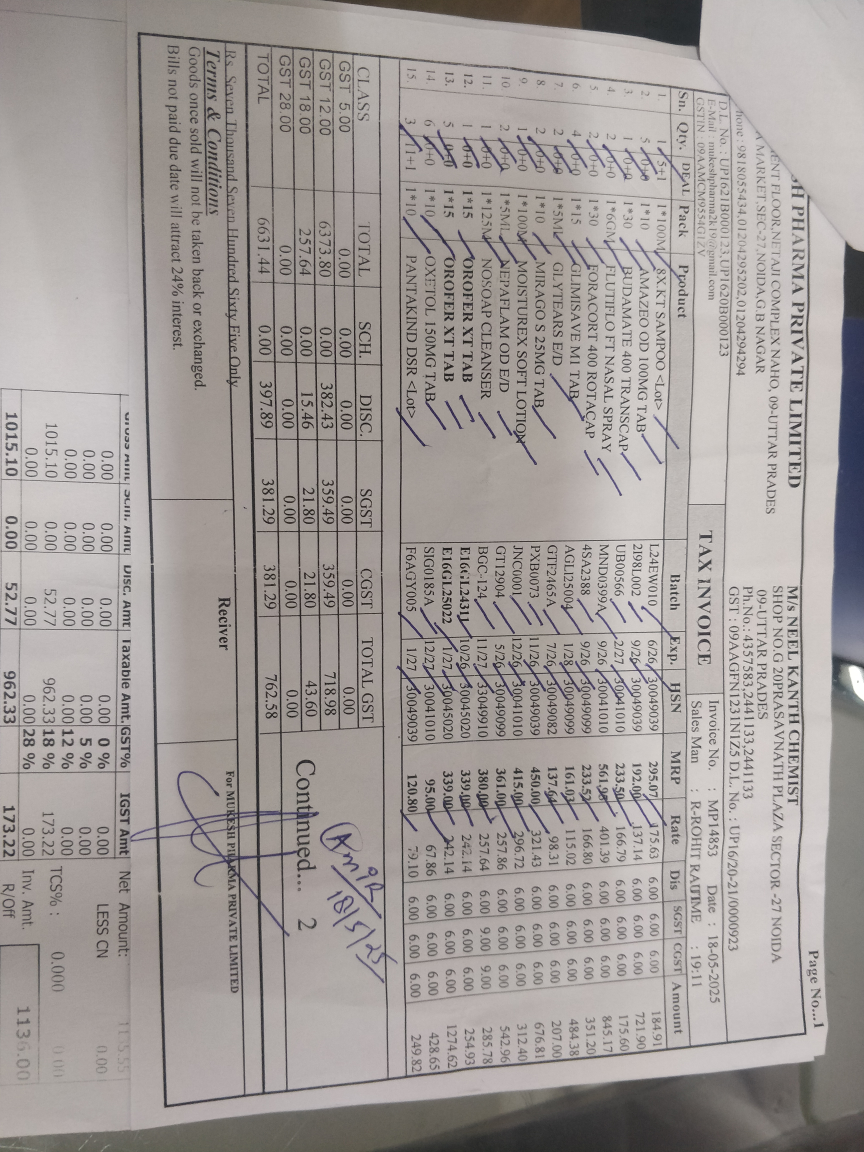 SH PHARMA PRIVATE LIMITED
MENT FLOOR,NETAJI COMPLEX NAHO, 09-UTTAR PRADES
A MARKET,SEC-27,NOIDA,G.B NAGAR
Phone : 9818055434,01204295202,01204294294
D.L. No. : UP1621B000123,UP1620B000123
E-Mail : mukeshpharma2k19@gmail.com
GSTIN : 09AAMCM9554G1ZV
Page No...1
M/s NEEL KANTH CHEMIST
SHOP NO.G 20PRASAVNATH PLAZA SECTOR -27 NOIDA
09-UTTAR PRADES
Ph.No.: 4357583,2441133,2441133
GST : 09AAGFN1231N1Z5 D.L. No. : UP16/20-21/0000923
TAX INVOICE
Invoice No. : MP14853 Date : 18-05-2025
Sales Man : R-ROHIT RAI TIME : 19:11
Sn. Qty. DEAL Pack Pproduct Batch Exp. HSN MRP Rate Dis SGST CGST Amount
1. 1 5+1 1*100M 8X.KT SAMPOO <Lot> L24EW010 6/26 30049039 295.07 175.63 6.00 6.00 6.00 184.91
2. 5 0+0 1*10 AMAZEO OD 100MG TAB 2198L002 9/26 30049039 192.00 137.14 6.00 6.00 6.00 721.90
3. 1 0+0 1*30 BUDAMATE 400 TRANSCAP UB00566 2/27 30041010 233.50 166.79 6.00 6.00 6.00 175.60
4. 2 0+0 1*6GM FLUTIFLO FT NASAL SPRAY MND0399A 9/26 30041010 561.95 401.39 6.00 6.00 6.00 845.17
5. 2 0+0 1*30 FORACORT 400 ROTACAP 4SA2388 9/26 30049099 233.52 166.80 6.00 6.00 6.00 351.20
6. 4 0+0 1*15 GLIMISAVE M1 TAB AGL125004 1/28 30049099 161.03 115.02 6.00 6.00 6.00 484.38
7. 2 0+0 1*5ML GLYTEARS E/D GTF2465A 7/26 30049082 137.64 98.31 6.00 6.00 6.00 207.00
8. 2 0+0 1*10 MIRAGO S 25MG TAB PXB0073 11/26 30049039 450.00 321.43 6.00 6.00 6.00 676.81
9. 1 0+0 1*100M MOISTUREX SOFT LOTION JNC0001 12/26 30041010 415.00 296.72 6.00 6.00 6.00 312.40
10. 2 0+0 1*5ML NEPAFLAM OD E/D GT12904 5/26 30049099 361.00 257.86 6.00 6.00 6.00 542.96
11. 1 0+0 1*125M NOSOAP CLEANSER BGC-124 11/27 33049910 380.00 257.64 6.00 9.00 9.00 285.78
12. 1 0+0 1*15 OROFER XT TAB E16GL24311 10/26 30045020 339.00 242.14 6.00 6.00 6.00 254.93
13. 5 0+0 1*15 OROFER XT TAB E16GL25022 1/27 30045020 339.00 242.14 6.00 6.00 6.00 1274.62
14. 6 0+0 1*10 OXETOL 150MG TAB SIG0185A 12/27 30041010 95.00 67.86 6.00 6.00 6.00 428.65
15. 3 11+1 1*10 PANTAKIND DSR <Lot> F6AGY005 1/27 30049039 120.80 79.10 6.00 6.00 6.00 249.82
CLASS TOTAL SCH. DISC. SGST CGST TOTAL GST
GST 5.00 0.00 0.00 0.00 0.00 0.00 0.00
GST 12.00 6373.80 0.00 382.43 359.49 359.49 718.98
GST 18.00 257.64 0.00 15.46 21.80 21.80 43.60
GST 28.00 0.00 0.00 0.00 0.00 0.00 0.00
TOTAL 6631.44 0.00 397.89 381.29 381.29 762.58
Continued... 2
18/5/25
Rs. Seven Thousand Seven Hundred Sixty Five Only
Terms & Conditions
Goods once sold will not be taken back or exchanged.
Bills not paid due date will attract 24% interest.
Reciver
For MUKESH PHARMA PRIVATE LIMITED
Gross Amt. Sch. Amt. Disc. Amt. Taxable Amt. GST% IGST Amt Net Amount: 1135.55
0.00 0.00 0.00 0.00 0 % 0.00 LESS CN 0.00
0.00 0.00 0.00 0.00 5 % 0.00
0.00 0.00 0.00 0.00 12 % 0.00
1015.10 0.00 52.77 962.33 18 % 173.22 TCS% : 0.000 0.00
0.00 0.00 0.00 0.00 28 % 0.00 Inv. Amt.
1015.10 0.00 52.77 962.33 173.22 R/Off 1136.00